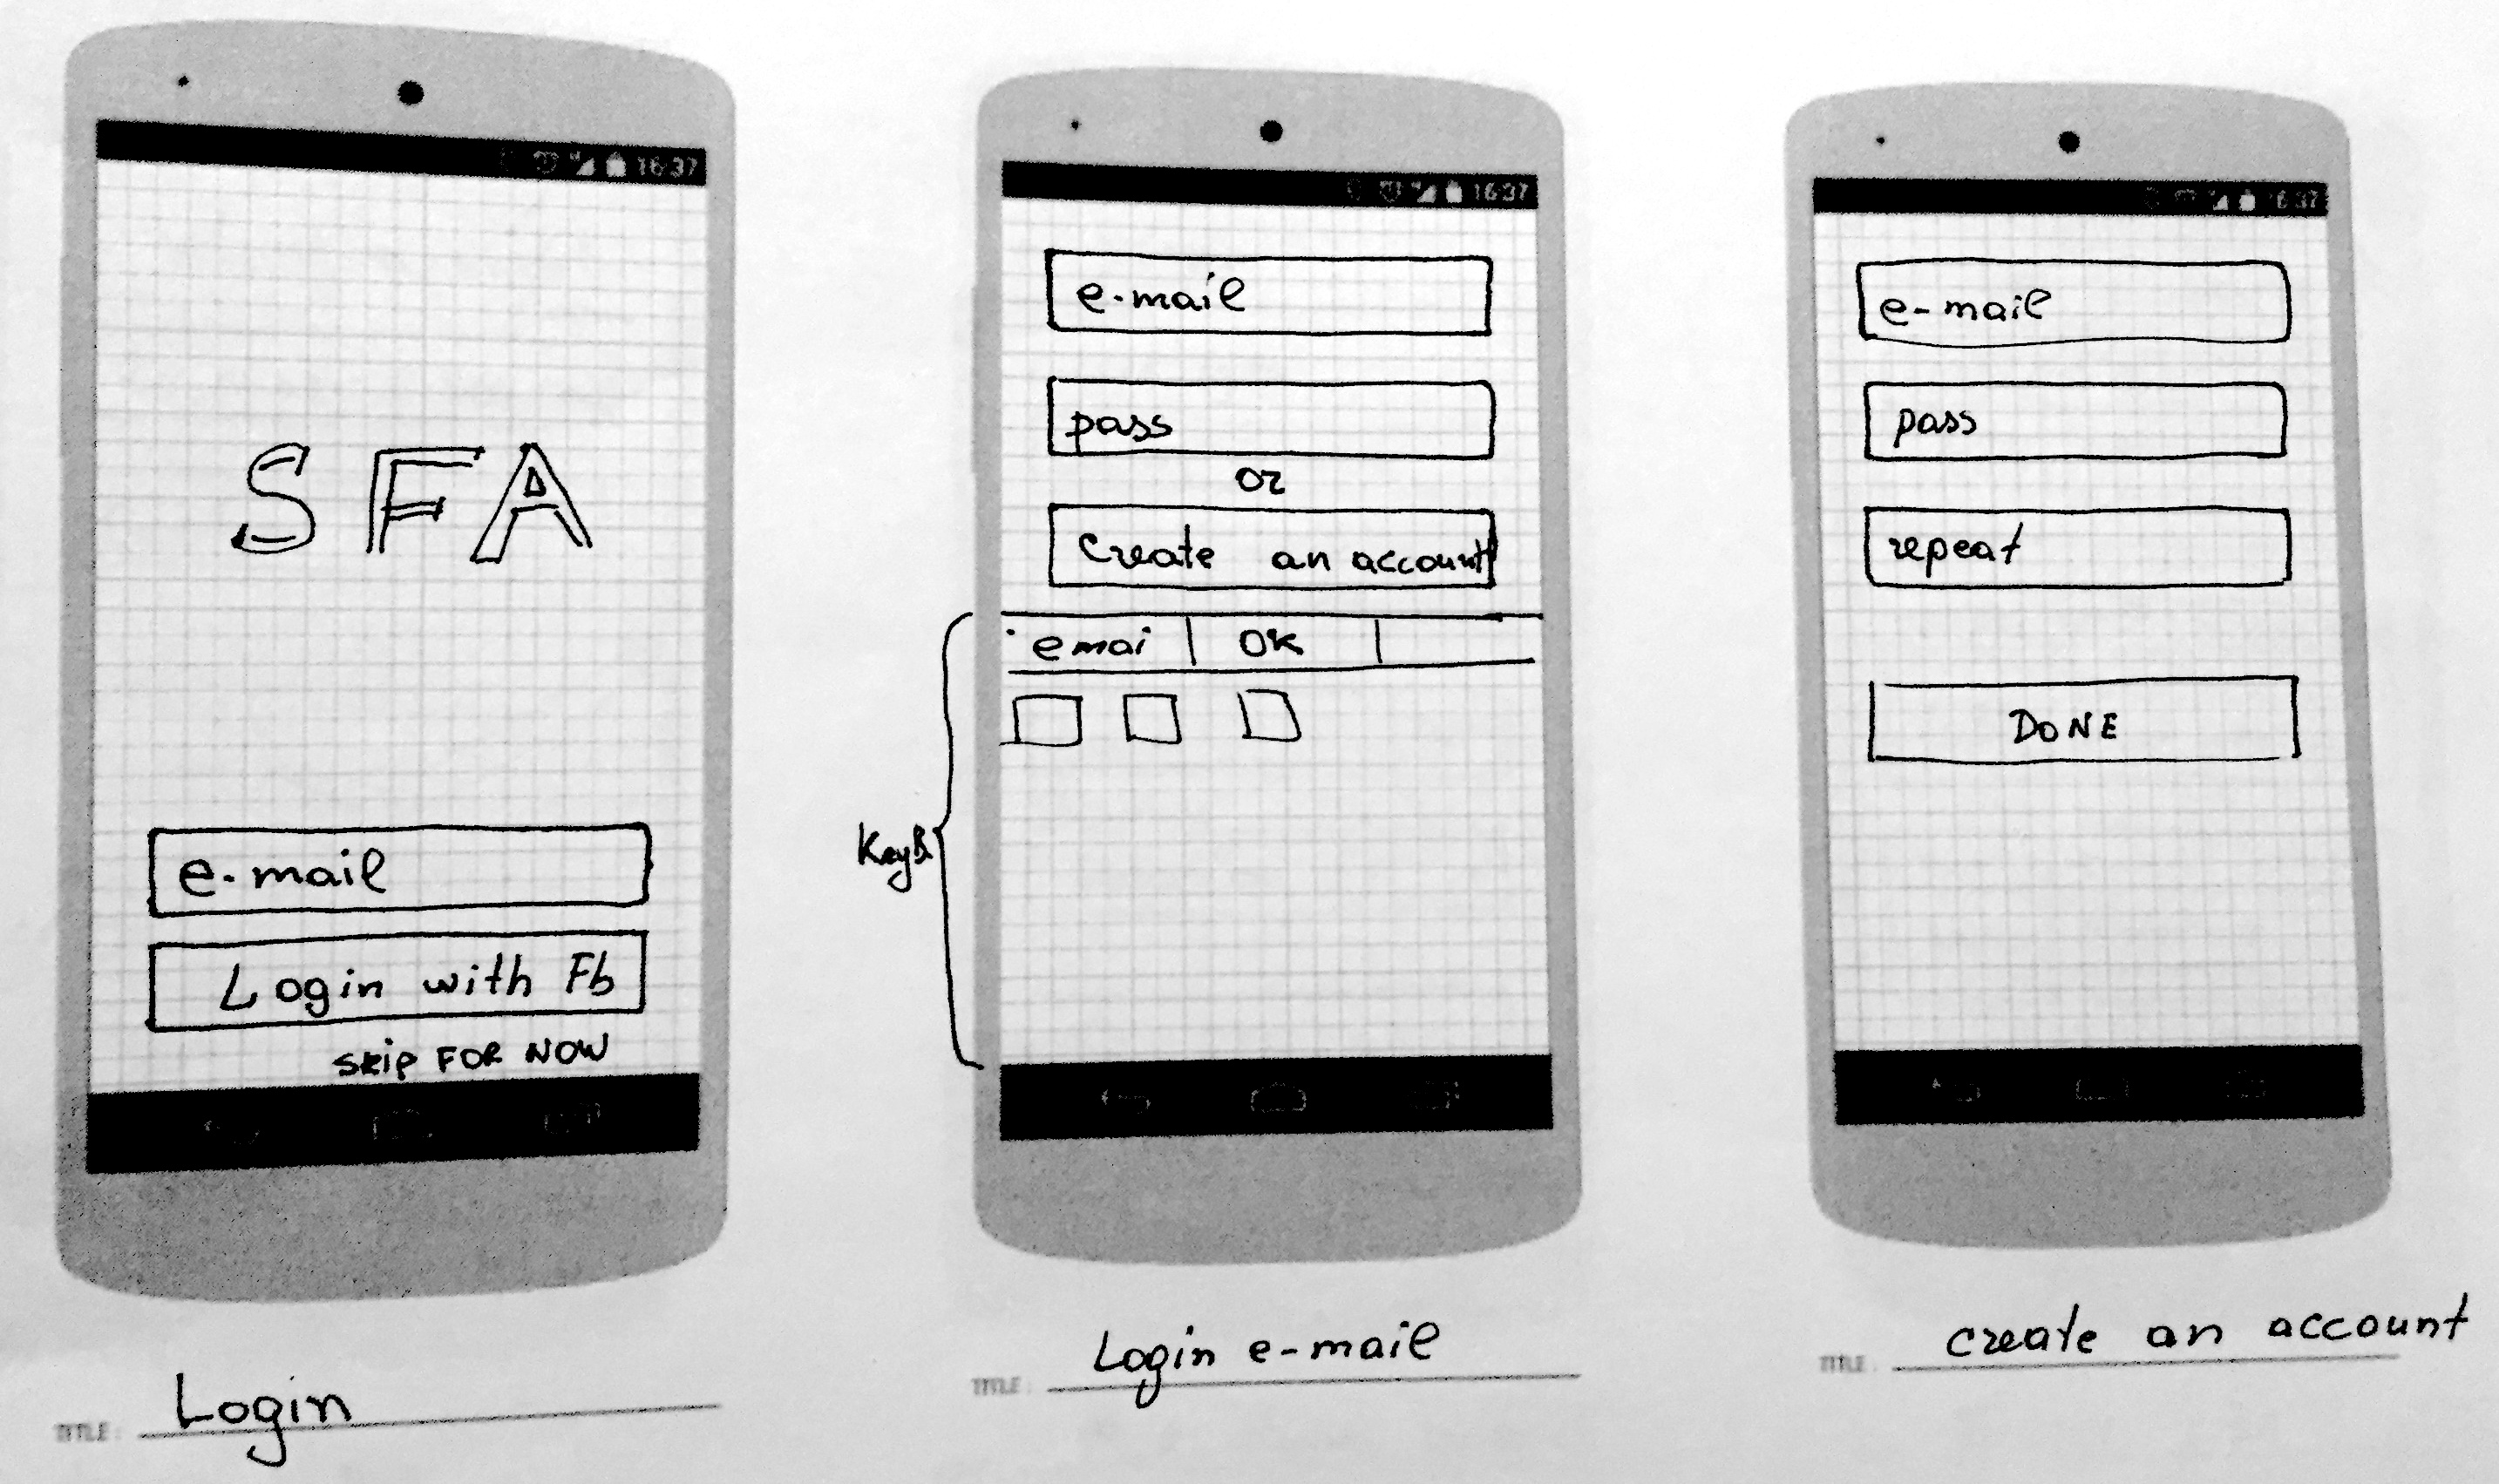 16:37
SFA
e-mail
Login with Fb
skip FOR NOW
TITLE: Login
16:37
e-mail
pass
or
Create an account
emai | OK |
KeyB
TITLE: Login e-mail
16:37
e-mail
pass
repeat
DONE
TITLE: create an account